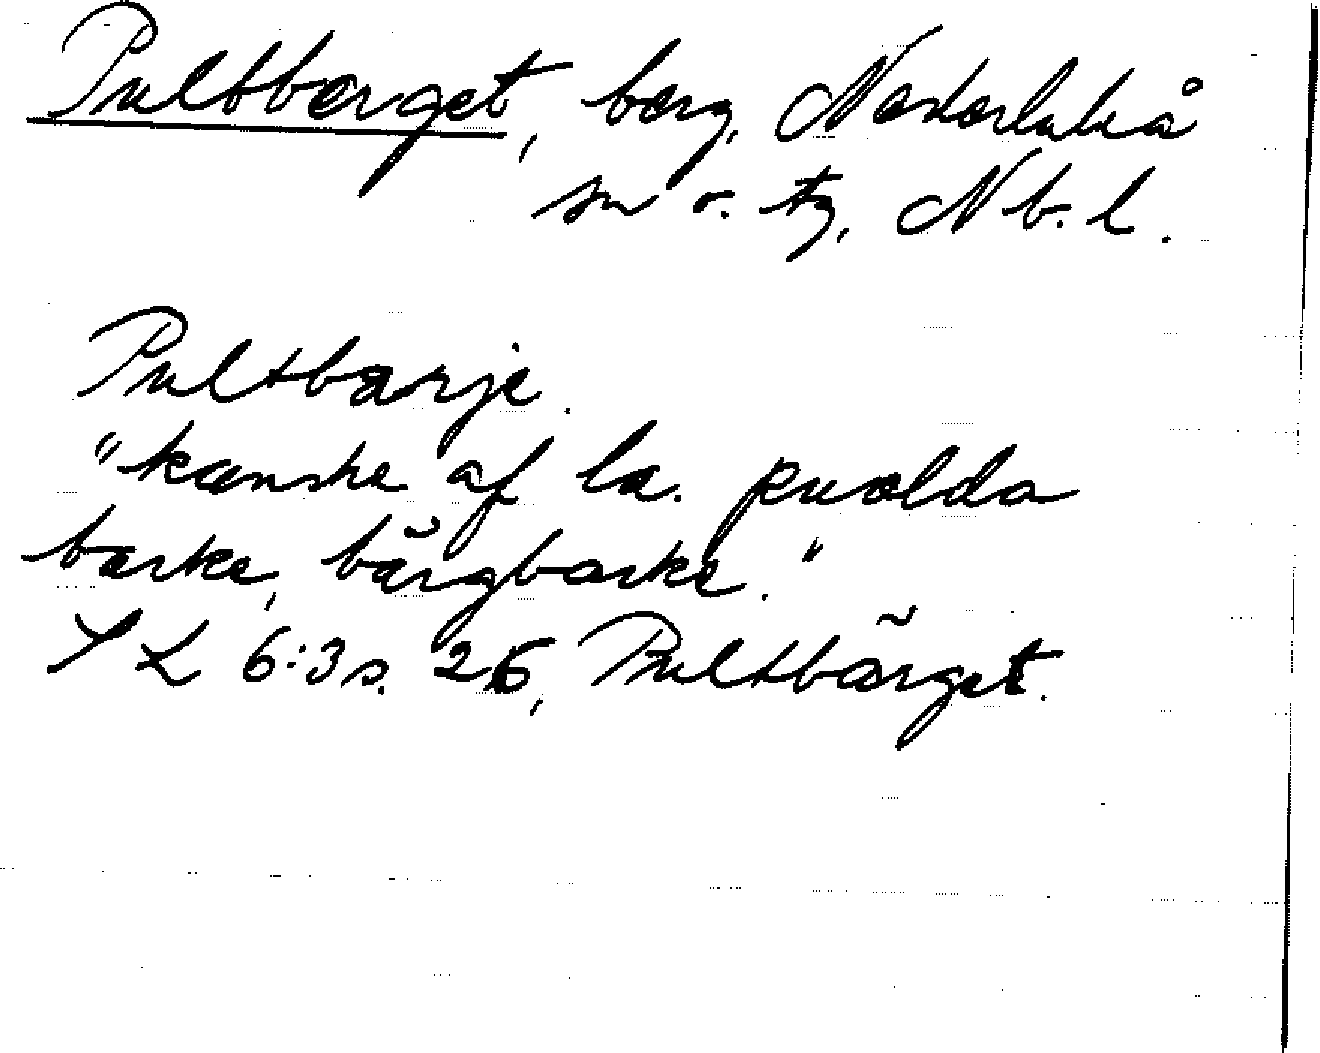 Pultberget, berg, Nederluleå
sn o. tg, Nb. l.
Pultbarje.
"kanske af la. puolda
backe, bärgbacke."
SL 6:3 s. 26, Pultbärget.